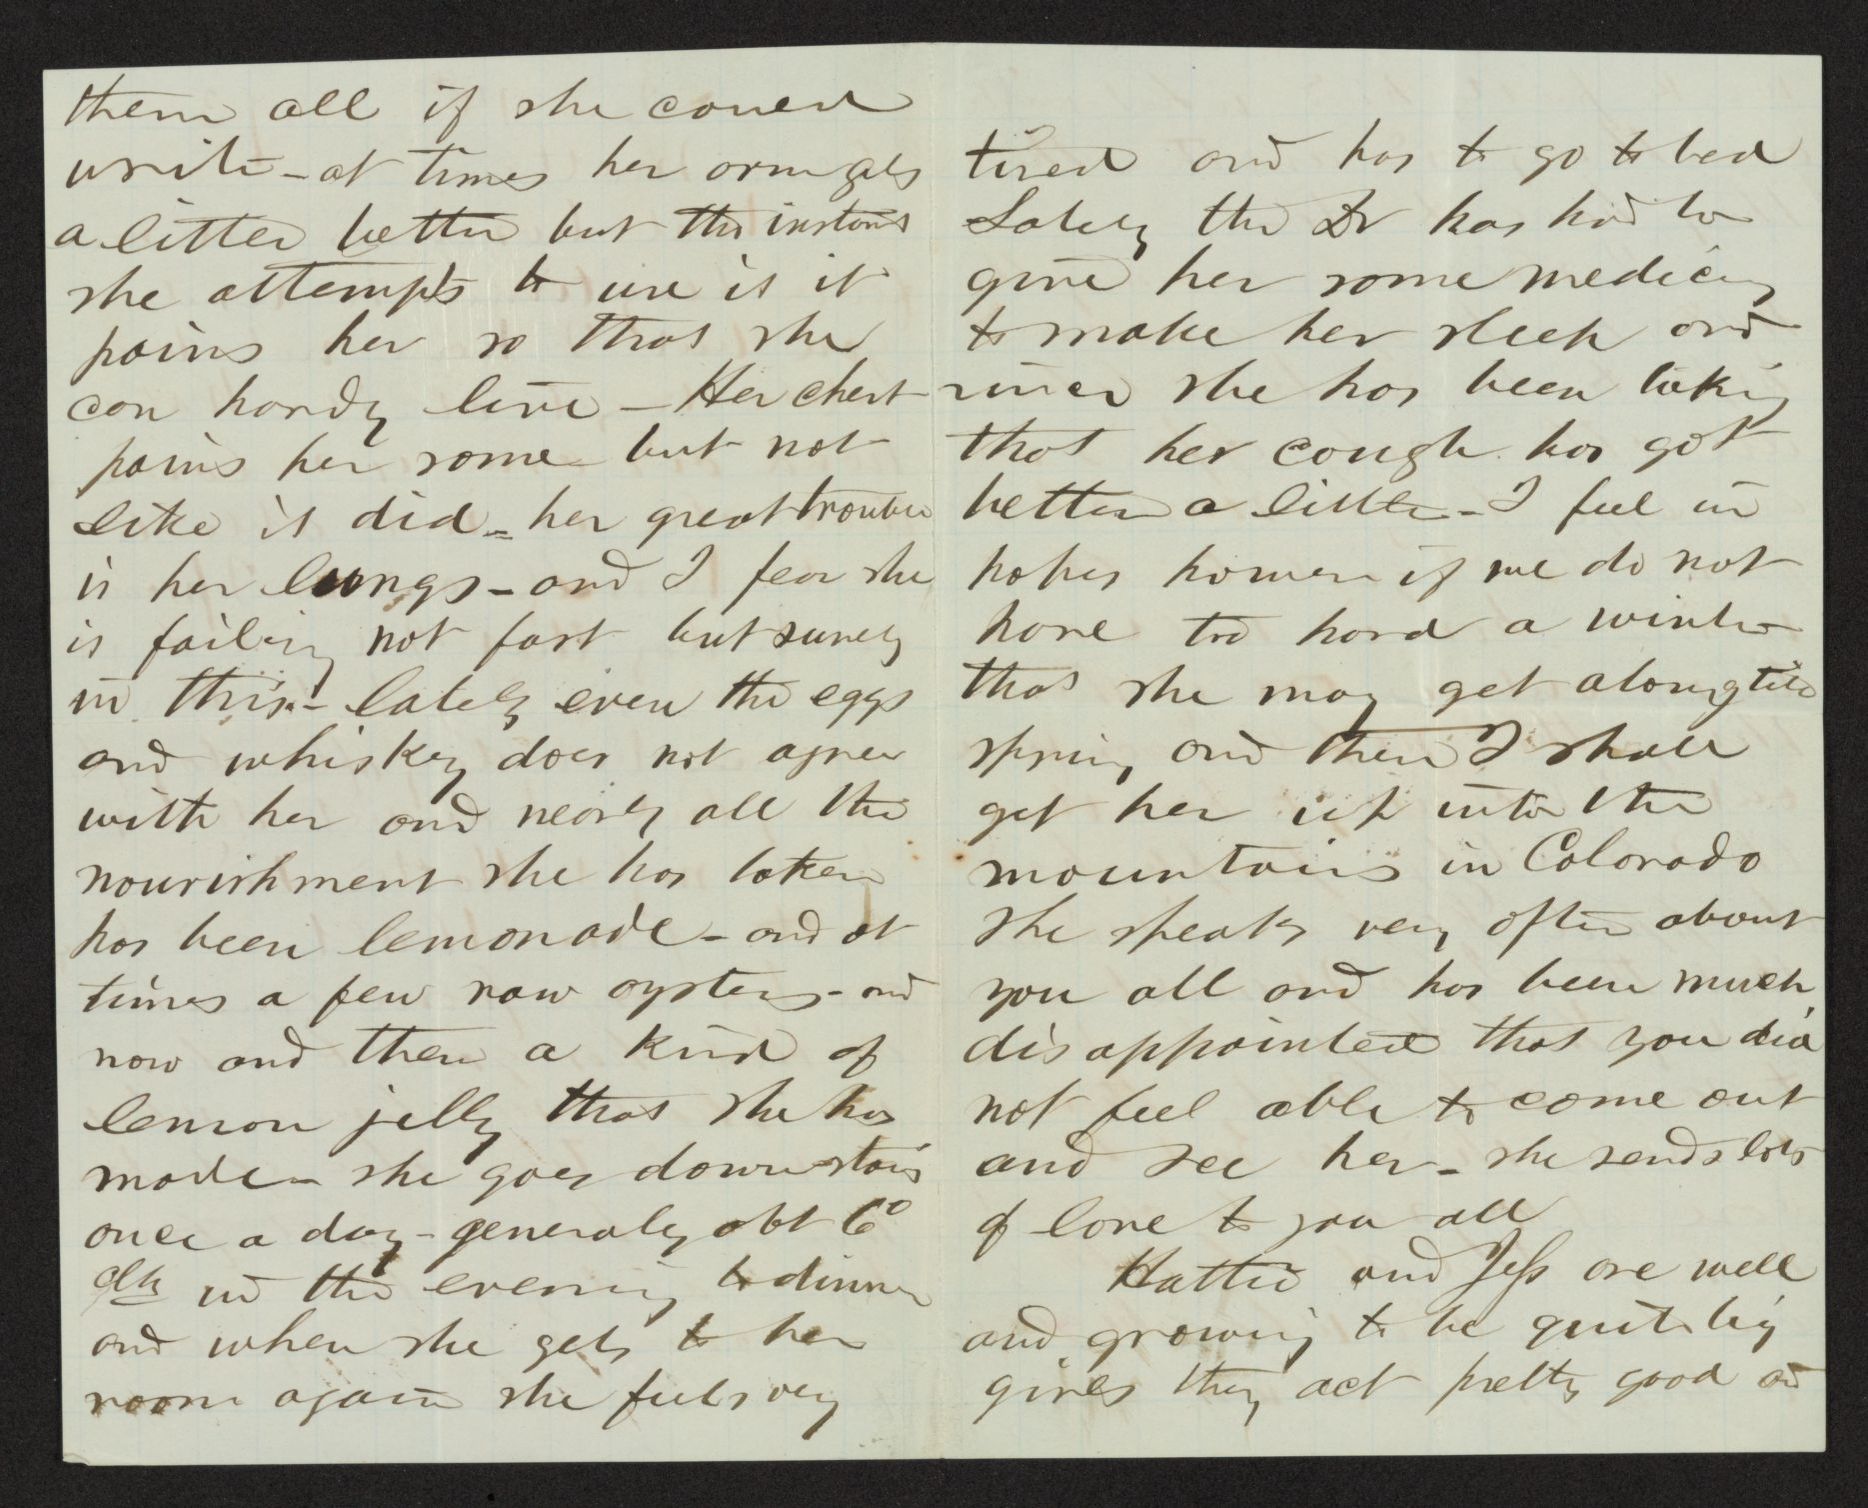 them all if she could
write - at times her arm gets
a little better but the instant
she attempts to use it it
pains her so that she
can hardy live - Her chest
pains her some but not
like it did - her great trouble
is her lungs - and I fear she
is failing not fast but surely
in this - lately even the eggs
and whiskey does not agree
with her and nearly all the
nourishment she has taken
has been lemonade - and at
times a few raw oysters - and
now and then a kind of
lemon jelly that she has
made - she goes down stairs
once a day - generaly abt 6 o
clk in the evening to dinner
and when she gets to her
room again she feels very
tired and has to go to bed
Lately the Dr has had to
give her some medicing
to make her sleep and
since she has been taking
that her cough has got
better a little - I feel in
hopes however if we do not
have too hard a winter
that she may get along till
spring and then I shall
get her up into the
mountains in Colorado
She speaks very often about
you all and has been much
disappointed that you did
not feel able to come out
and see her - she sends lots
of love to you all
Hattie and Jess are well
and growing to be quite big
girls they act pretty good and